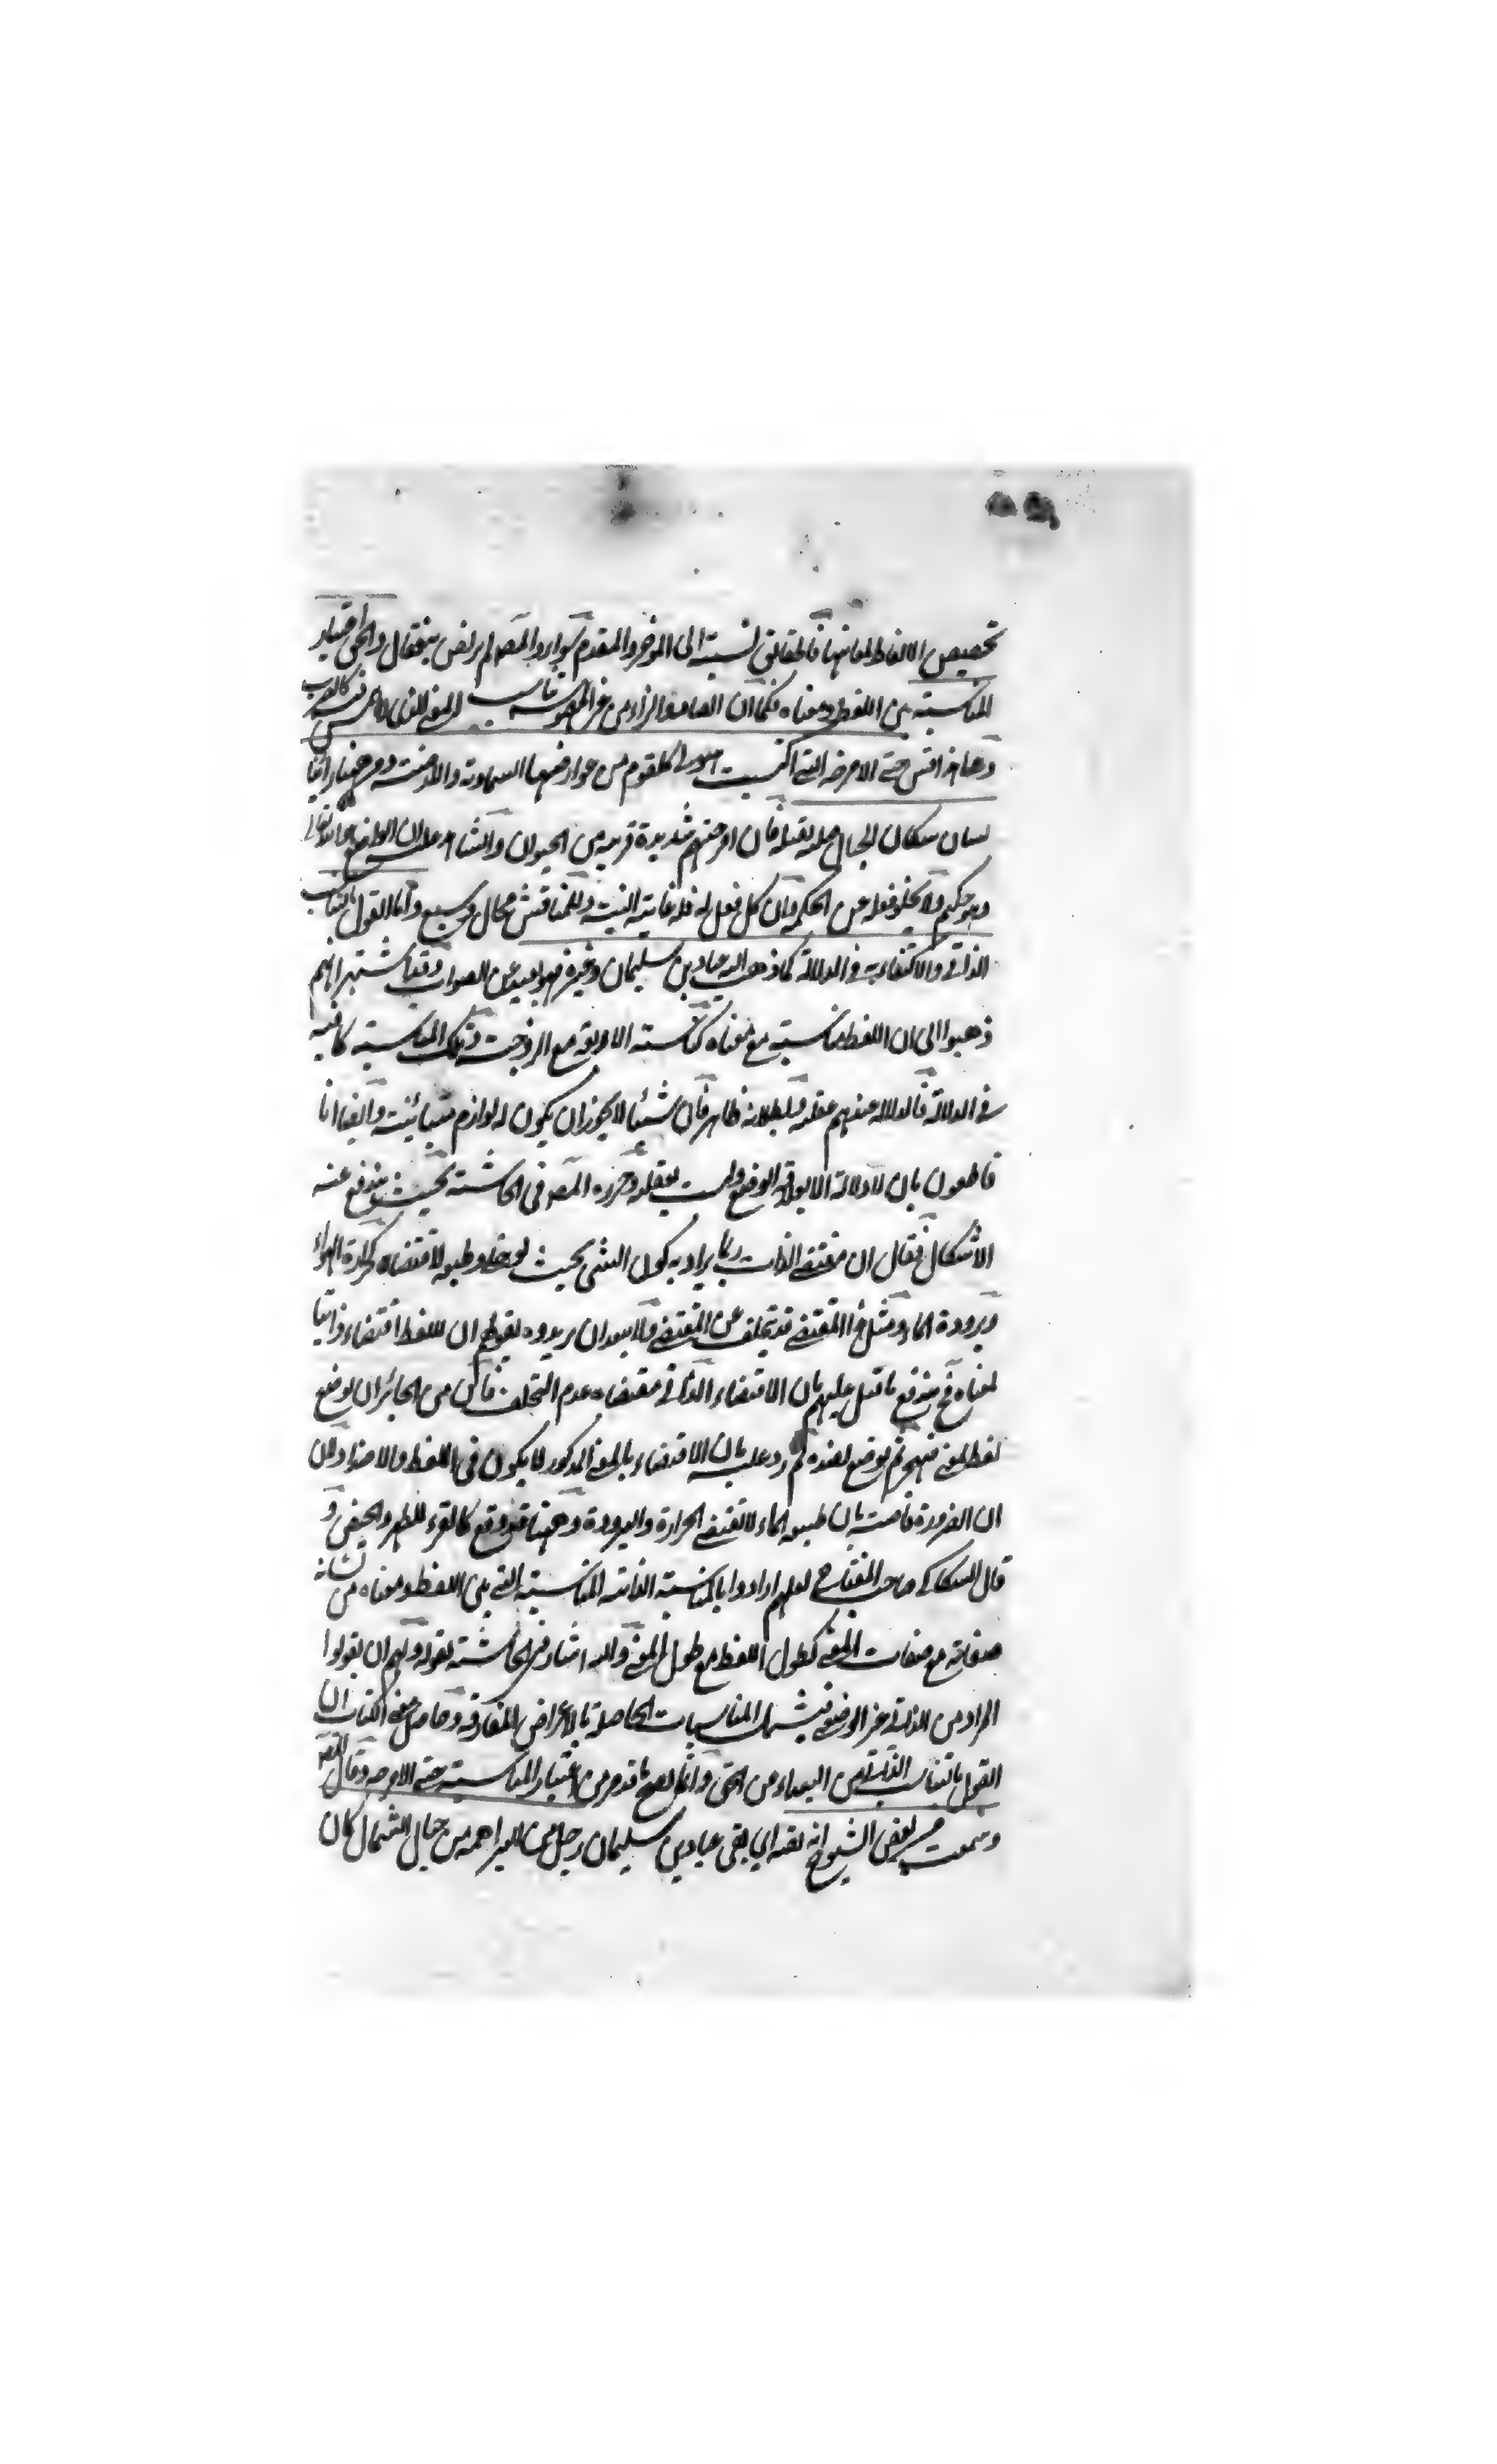 تخصيص الالفاظ لمعانيها فاطلاق نسبته الى الموخر والمقدم سواء والمص لم يرتض به فقال والحق اعتبار
المناسبة بين اللفظ ومعناه فكما ان الصلد والزاد من غير المعنى الذي
حتى الامزجة التي اكتسبت كل قوم من عوارضها السماوية والارضية ومن ههنا رأينا
لسان سكان الجبال جملة ثقيلة فان امزجتهم شديدة قريبة من الحيوان على ان الواضع هو الله تعالى
وهو حكيم ولا يخلو فعله عن الحكمة وان كل فعل له فله غاية البتة وللمناقش مجال وسيع واما القول بالتناسب
الذاتي والاكتفاء به في الدلالة كما ذهب اليه عباد بن سليمان وغيره فهو بعيد عن الصواب وقد اشتهر انهم
ذهبوا الى ان اللفظ مناسبة مع معناه كمناسبة الاربعة مع الزوجية وتلك المناسبة كافية
في الدلالة فالدلالة عندهم عقلية وبطلانه ظاهر فان شيئا لا يجوز ان يكون له لوازم متبائنة وايضا انا
قاطعون بان لا دلالة الا بعلاقة الوضع وليست بعقلية وحرره المص في الحاشية بحيث يندفع عنه
الاشكال فقال ان مقتضى الذات ربما يراد به كون الشيء بحيث لو خلي وطبعه لاقتضاه كحرارة الهواء
وبرودة الماء ومثل هذا المقتضى قد يتخلف عن المقتضي ولا يبعد ان يريدوه بقولهم ان للفظ اقتضاء ذاتيا
لمعناه فح يندفع ما قيل عليهم بان الاقتضاء الذاتي مقتضاه عدم التخلف فان من الجائز ان يوضع
لفظ لمعنى فيهجر ثم يوضع لضده ثم رد عليه بان الاقتضاء بالمعنى المذكور لا يكون في اللفظ والاضداد لان
ان الضرورة قاضية بان طبيعة الماء لا تقتضي الحرارة والبرودة وههنا قد وقع كالقرء للطهر والحيض و
قال السكاكي صاحب المفتاح لعلهم ارادوا بالمناسبة الذاتية المناسبة التي بين اللفظ ومعناه من
صفاته مع صفات المعنى كطول اللفظ مع طول المعنى واليه اشار في الحاشية بقوله ولهم ان يقولوا
المراد من الذاتي غير الوضعي فيشمل المناسبات الحاصلة بالاعراض المفارقة وحاصل معنى الكتاب ان
القول بالتناسب الذاتي من البعداء من الحق وانما يصح ما قد مر من اعتبار المناسبة حتى الامزجة وقال المص
وسمعت من بعض الشيوخ انه لقيه اي لقي عباد بن سليمان رجل من البراهمة من جبال الشمال كان